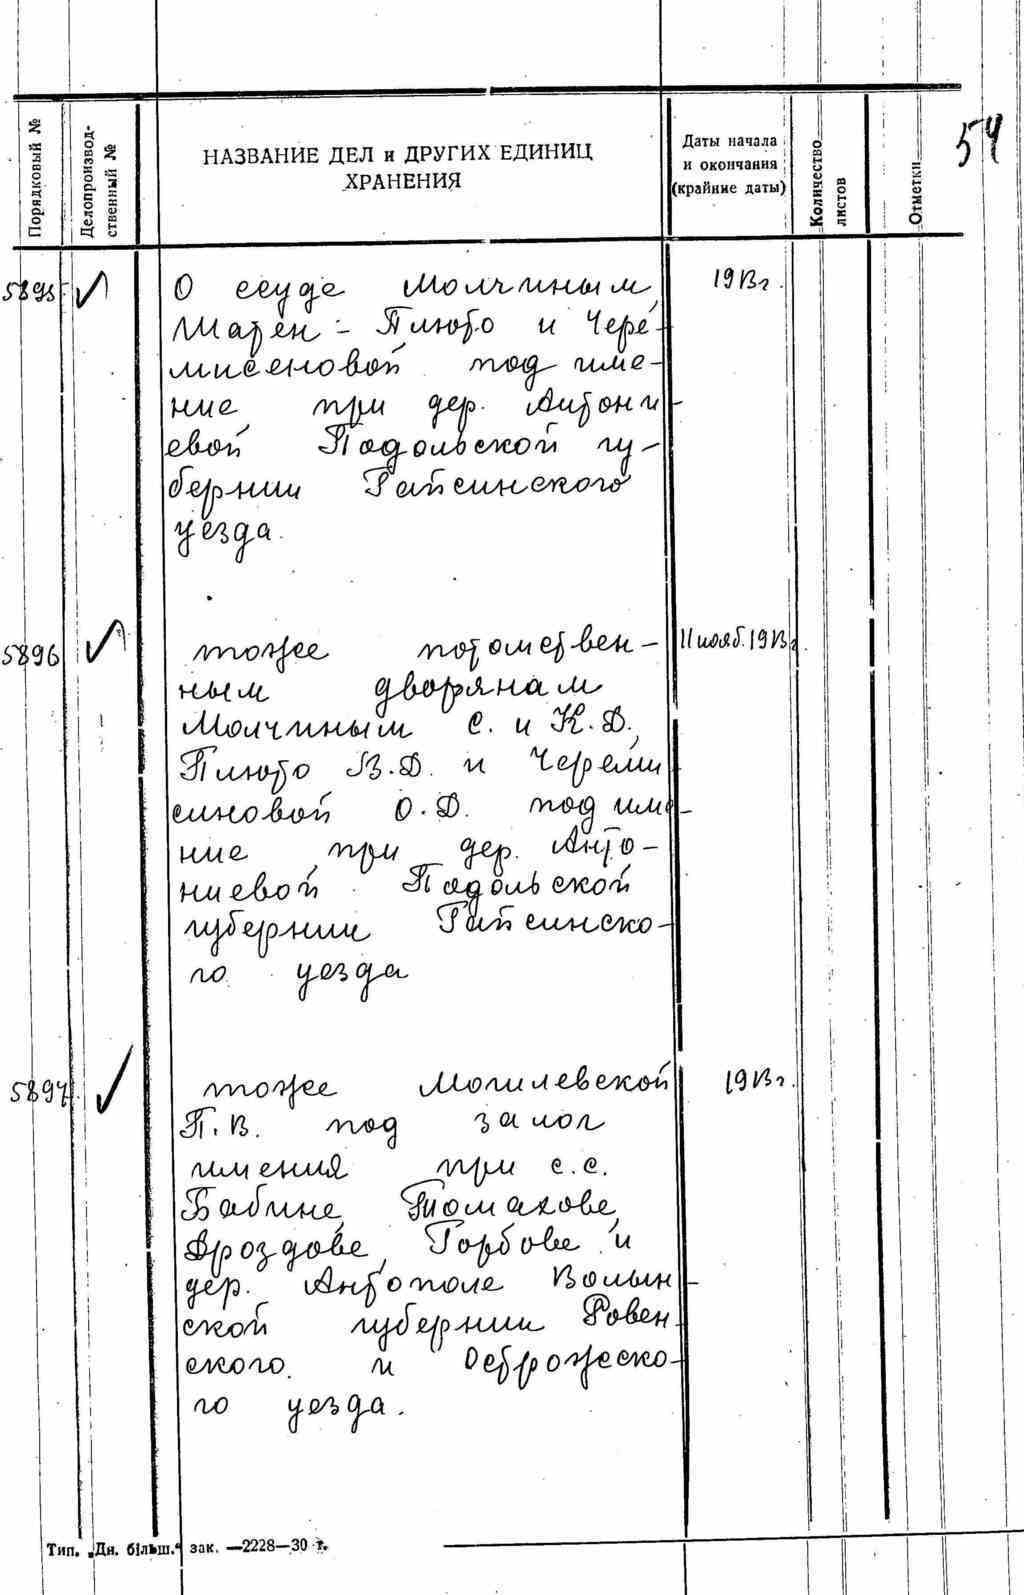 54
Порядковый №
Делопроизвод-
ственный №
НАЗВАНИЕ ДЕЛ и ДРУГИХ ЕДИНИЦ
ХРАНЕНИЯ
Даты начала
и окончания
(крайние даты)
Количество
листов
Отметки
5895 О ссуде Молчиным, 1913 г.
Матен - Плюто и Чере-
мисеновой под име-
ние при дер. Антони-
евой Подольской гу-
бернии Гайсинского
уезда.
5896 тоже потомствен- 11 нояб. 1913 г.
ным дворянам
Молчиным С. и К.Д.,
Плюто В.Д. и Череми
синовой О.Д. под име-
ние при дер. Анто-
ниевой Подольской
губернии Гайсинско-
го уезда
5897 тоже Могилевской 1913 г.
П.В. под залог
имения при с.с.
Бабине, Томахове,
Дроздове, Горбове и
дер. Антополе Волын-
ской губернии Ровен-
ского и Острожско-
го уезда.
Тип. „Дн. більш.“ зак. —2228—30 г.